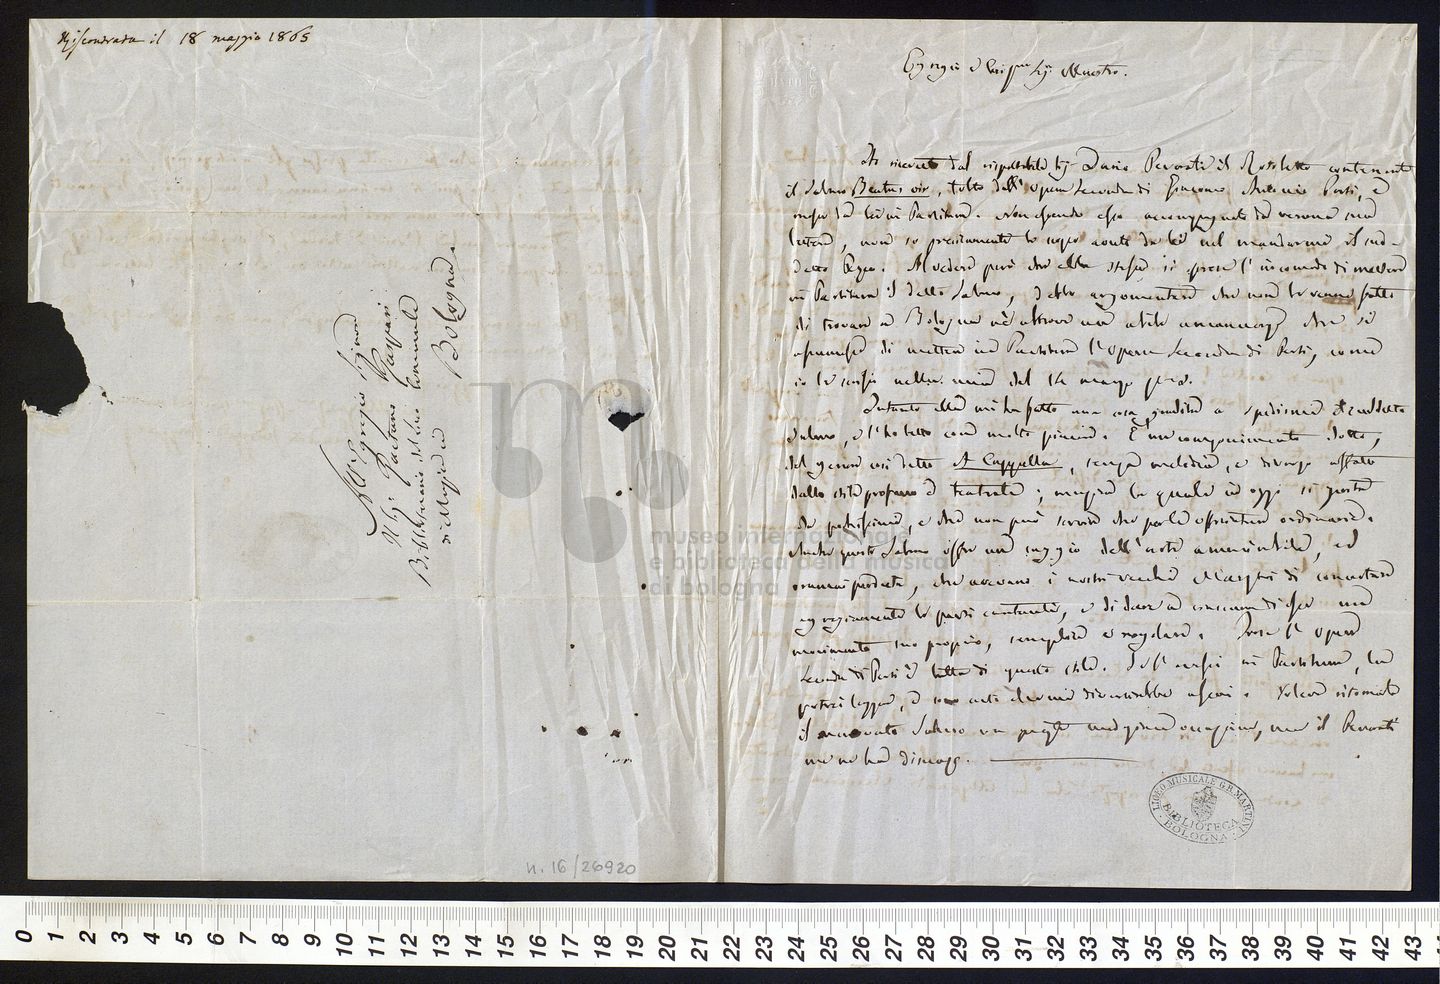 Riscontrata il 18 maggio 1865
All'Egregio Signore
Il Sig. Gaetano Gaspari
Bibliotecario del Liceo Comunale
di Musica in
Bologna
n. 16/26920
Egregio e Carissmo Sigr Maestro.
Ho ricevuto dal rispettabile Sig. Perroati il Rotoletto contenente
il Salmo Beatus vir, tolto dall'Opera Seconda di Giacomo Antonio Perti, e
messo da Lei in Partitura. Non essendo esso accompagnato da veruna sua
lettera, non so precisamente lo scopo avuto da Lei nel mandarmi il sud-
detto Pezzo. Al vedere però che ella stessa si prese l'incomodo di mettere
in Partitura il detto Salmo, debbo argomentare che non le venne fatto
di trovare a Bologna nè altrove un abile amanuense che si
assumesse di mettere in Partitura l'Opera Seconda di Perti, come
io le scrissi nella mia del 14 marzo
Intanto ella mi ha fatto una cosa gradita a spedirmi il suddetto
Salmo, e l'ho letto con molto piacere. È un componimento dotto,
del genere così detto A Cappella, senza melodia, e diverso affatto
dallo stile profano e teatrale; musica la quale in oggi si gusta
da pochissimi, e che non può servire che per le officiature ordinarie.
Anche questo Salmo offre un saggio dell'arte ammirabile, ed
oramai perduta, che avevano i nostri vecchi Maestri di concertare
egregiamente le parti cantanti, e di dare a ciascuna di esse un
movimento suo proprio, semplice e regolare. Forse l'Opera
Seconda di Perti è tutta di questo stile. Se l'avessi in Partitura, la
potrei leggere, e son certo che mi diverrebbe
il mandato Salmo
me ne ha
LICEO MUSICALE G.B. MARTINI
BIBLIOTECA
BOLOGNA
museo internazionale
e biblioteca della musica
di bologna
0 1 2 3 4 5 6 7 8 9 10 11 12 13 14 15 16 17 18 19 20 21 22 23 24 25 26 27 28 29 30 31 32 33 34 35 36 37 38 39 40 41 42 43